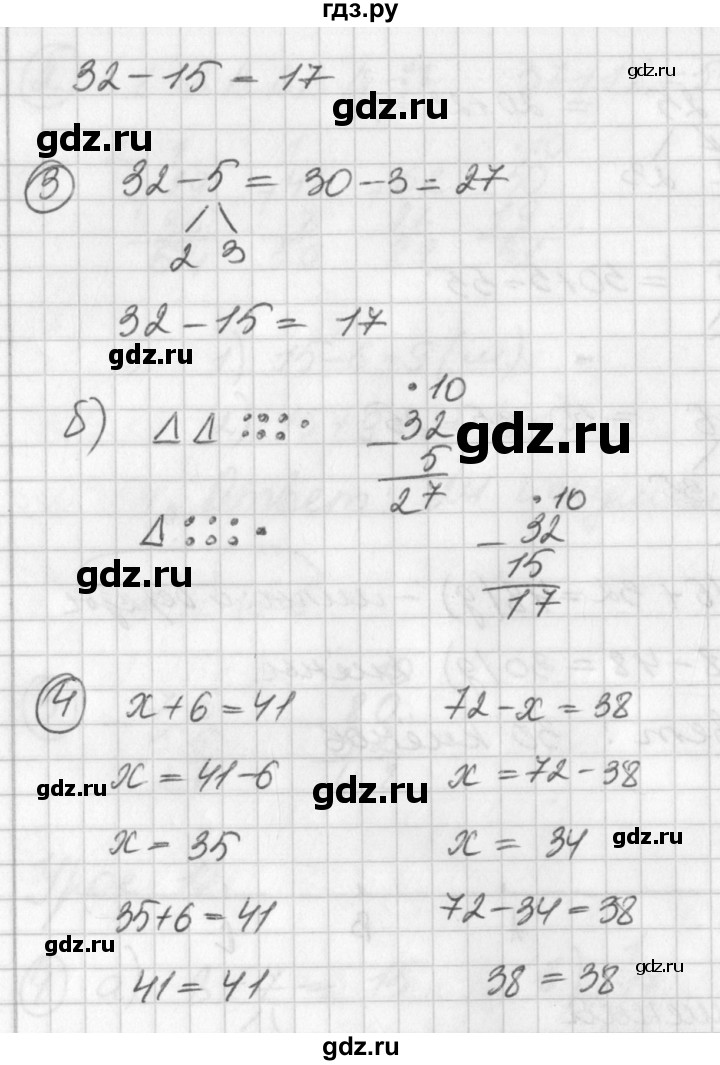 гдз.ру
gdz.ru
32 - 15 = 17
gdz.ru
gdz.ru
3 32 - 5 = 30 - 3 = 27
2 3
32 - 15 = 17
gdz.ru
б) 10
32
- 5
27
gdz.ru
10
- 32
15
17
gdz.ru
4 x + 6 = 41 72 - x = 38
x = 41 - 6 x = 72 - 38
gdz.ru gdz.ru
x = 35 x = 34
gdz.ru
35 + 6 = 41 72 - 34 = 38
gdz.ru
41 = 41 38 = 38
gdz.ru
gdz.ru